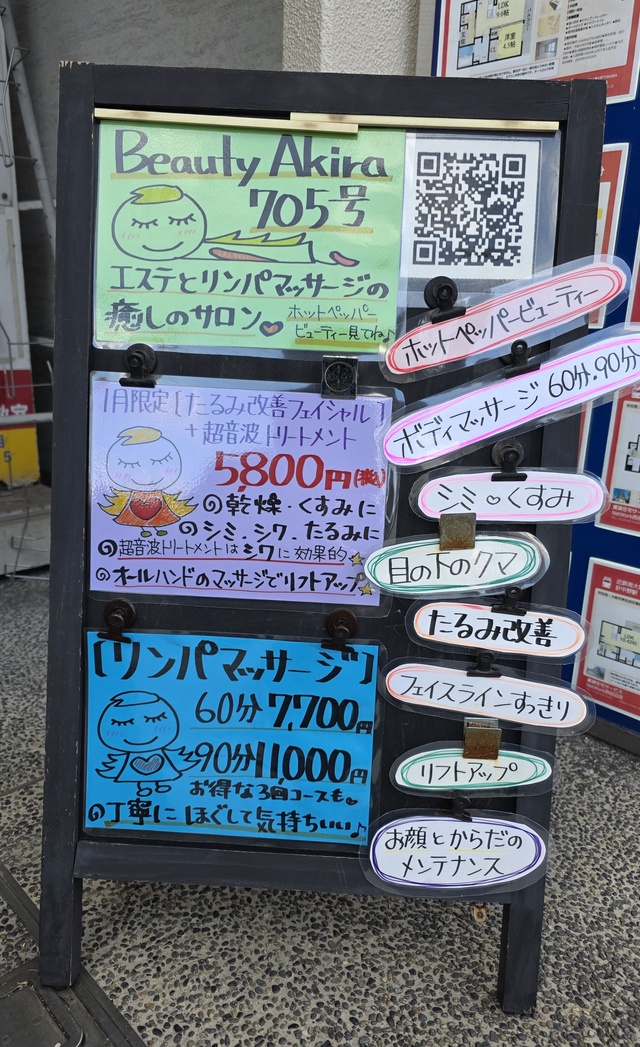 Beauty Akira
705号
エステとリンパマッサージの
癒しのサロン
ホットペッパー
ビューティー見てね♪
ホットペッパービューティー
ボディマッサージ 60分.90分
シミ♡くすみ
目の下のクマ
たるみ改善
フェイスラインすっきり
リフトアップ
お顔とからだの
メンテナンス
1月限定[たるみ改善フェイシャル]
+超音波トリートメント
5,800円(税込)
乾燥・くすみに
シミ.シワ.たるみに
超音波トリートメントはシワに効果的
オールハンドのマッサージでリフトアップ
[リンパマッサージ]
60分 7,700円
90分 11,000円
お得な3回コースも
丁寧に ほぐして気持ちいい♪
LDK
洋室
4.5帖